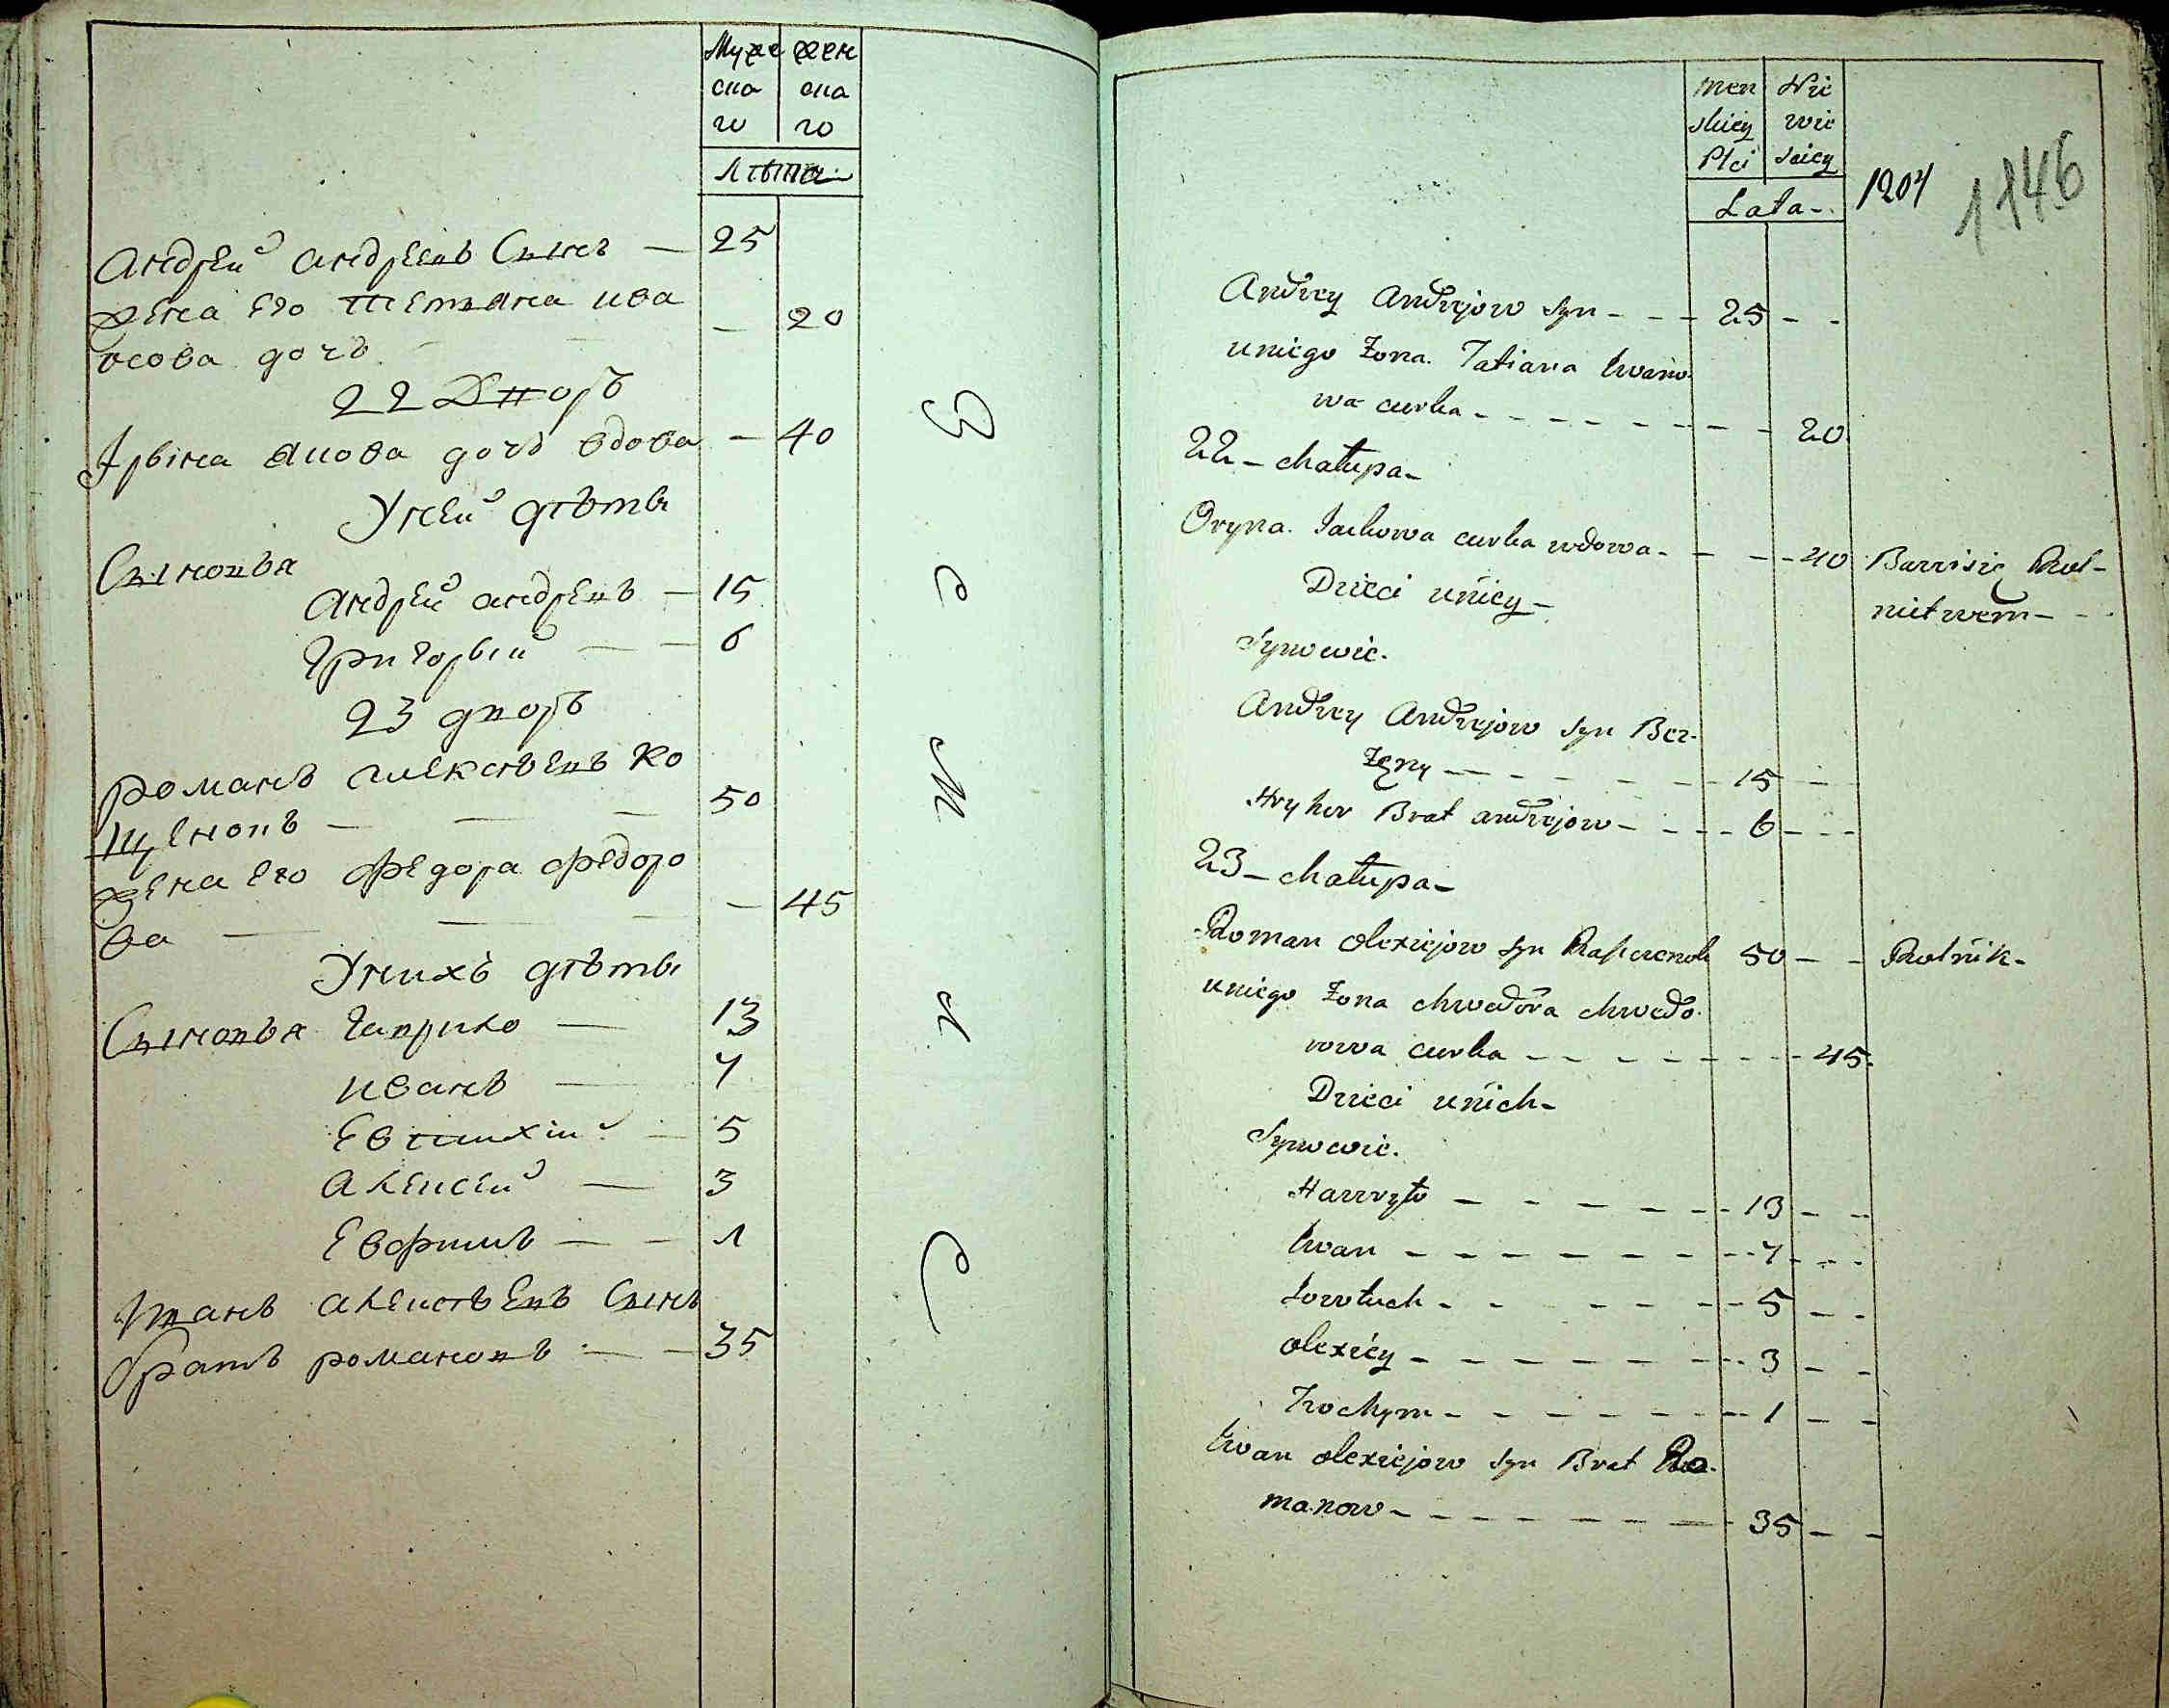 Муже жен
ска ска
го го
Лѣта
Андрей андреевъ Сынъ — 25
жена его татяна ива — 20
носова дочъ
22 Дворъ
Ирина Яцова дочъ вдова — 40
Унеи дѣти
Сыновя
Андрей андревъ — 15
Григорий — — 6
23 дворъ
романъ алексѣевъ Ко
щеновъ — — — 50
жена его федора федоро
ва — — — — 45
Унихъ дѣти
Сыновя Гаврило — 13
иванъ — 7
Евтихій — 5
Алексей — 3
Евфимъ — — 1
Иванъ алексѣевъ Сынъ
братъ романовъ — — 35
В
д
н
men Nie
skiey wie
Płci sciey
Lata
1204 1146
Andrey Andrejow syn - - - 25 - -
uniego Zona Tatiana Iwano
wa curka - - - - - - - - 20
22 - chałupa -
Oryna Jackowa curka wdowa - - - 40 Bawi się Rol-
nictwem - -
Dzieci u niey -
Synowie.
Andrey Andrejow syn Bez-
żęny - - - - - - 15 - -
Hryhor Brat andrejow - - - - 6 - - -
23 - chałupa -
Roman olexiejow syn 50 - - Rolnik -
uniego Zona chwedora chwedo-
rowa curka - - - - - - - - 45
Dzieci u nich -
Synowie.
Hawryło - - - - - - - 13 - -
Iwan - - - - - - - - 7 - - -
Jowtuch - - - - - - - 5 - -
olexiey - - - - - - - 3 - -
Trochym - - - - - - - 1 - -
Iwan olexiejow syn Brat Ro-
manow - - - - - - - 35 - -